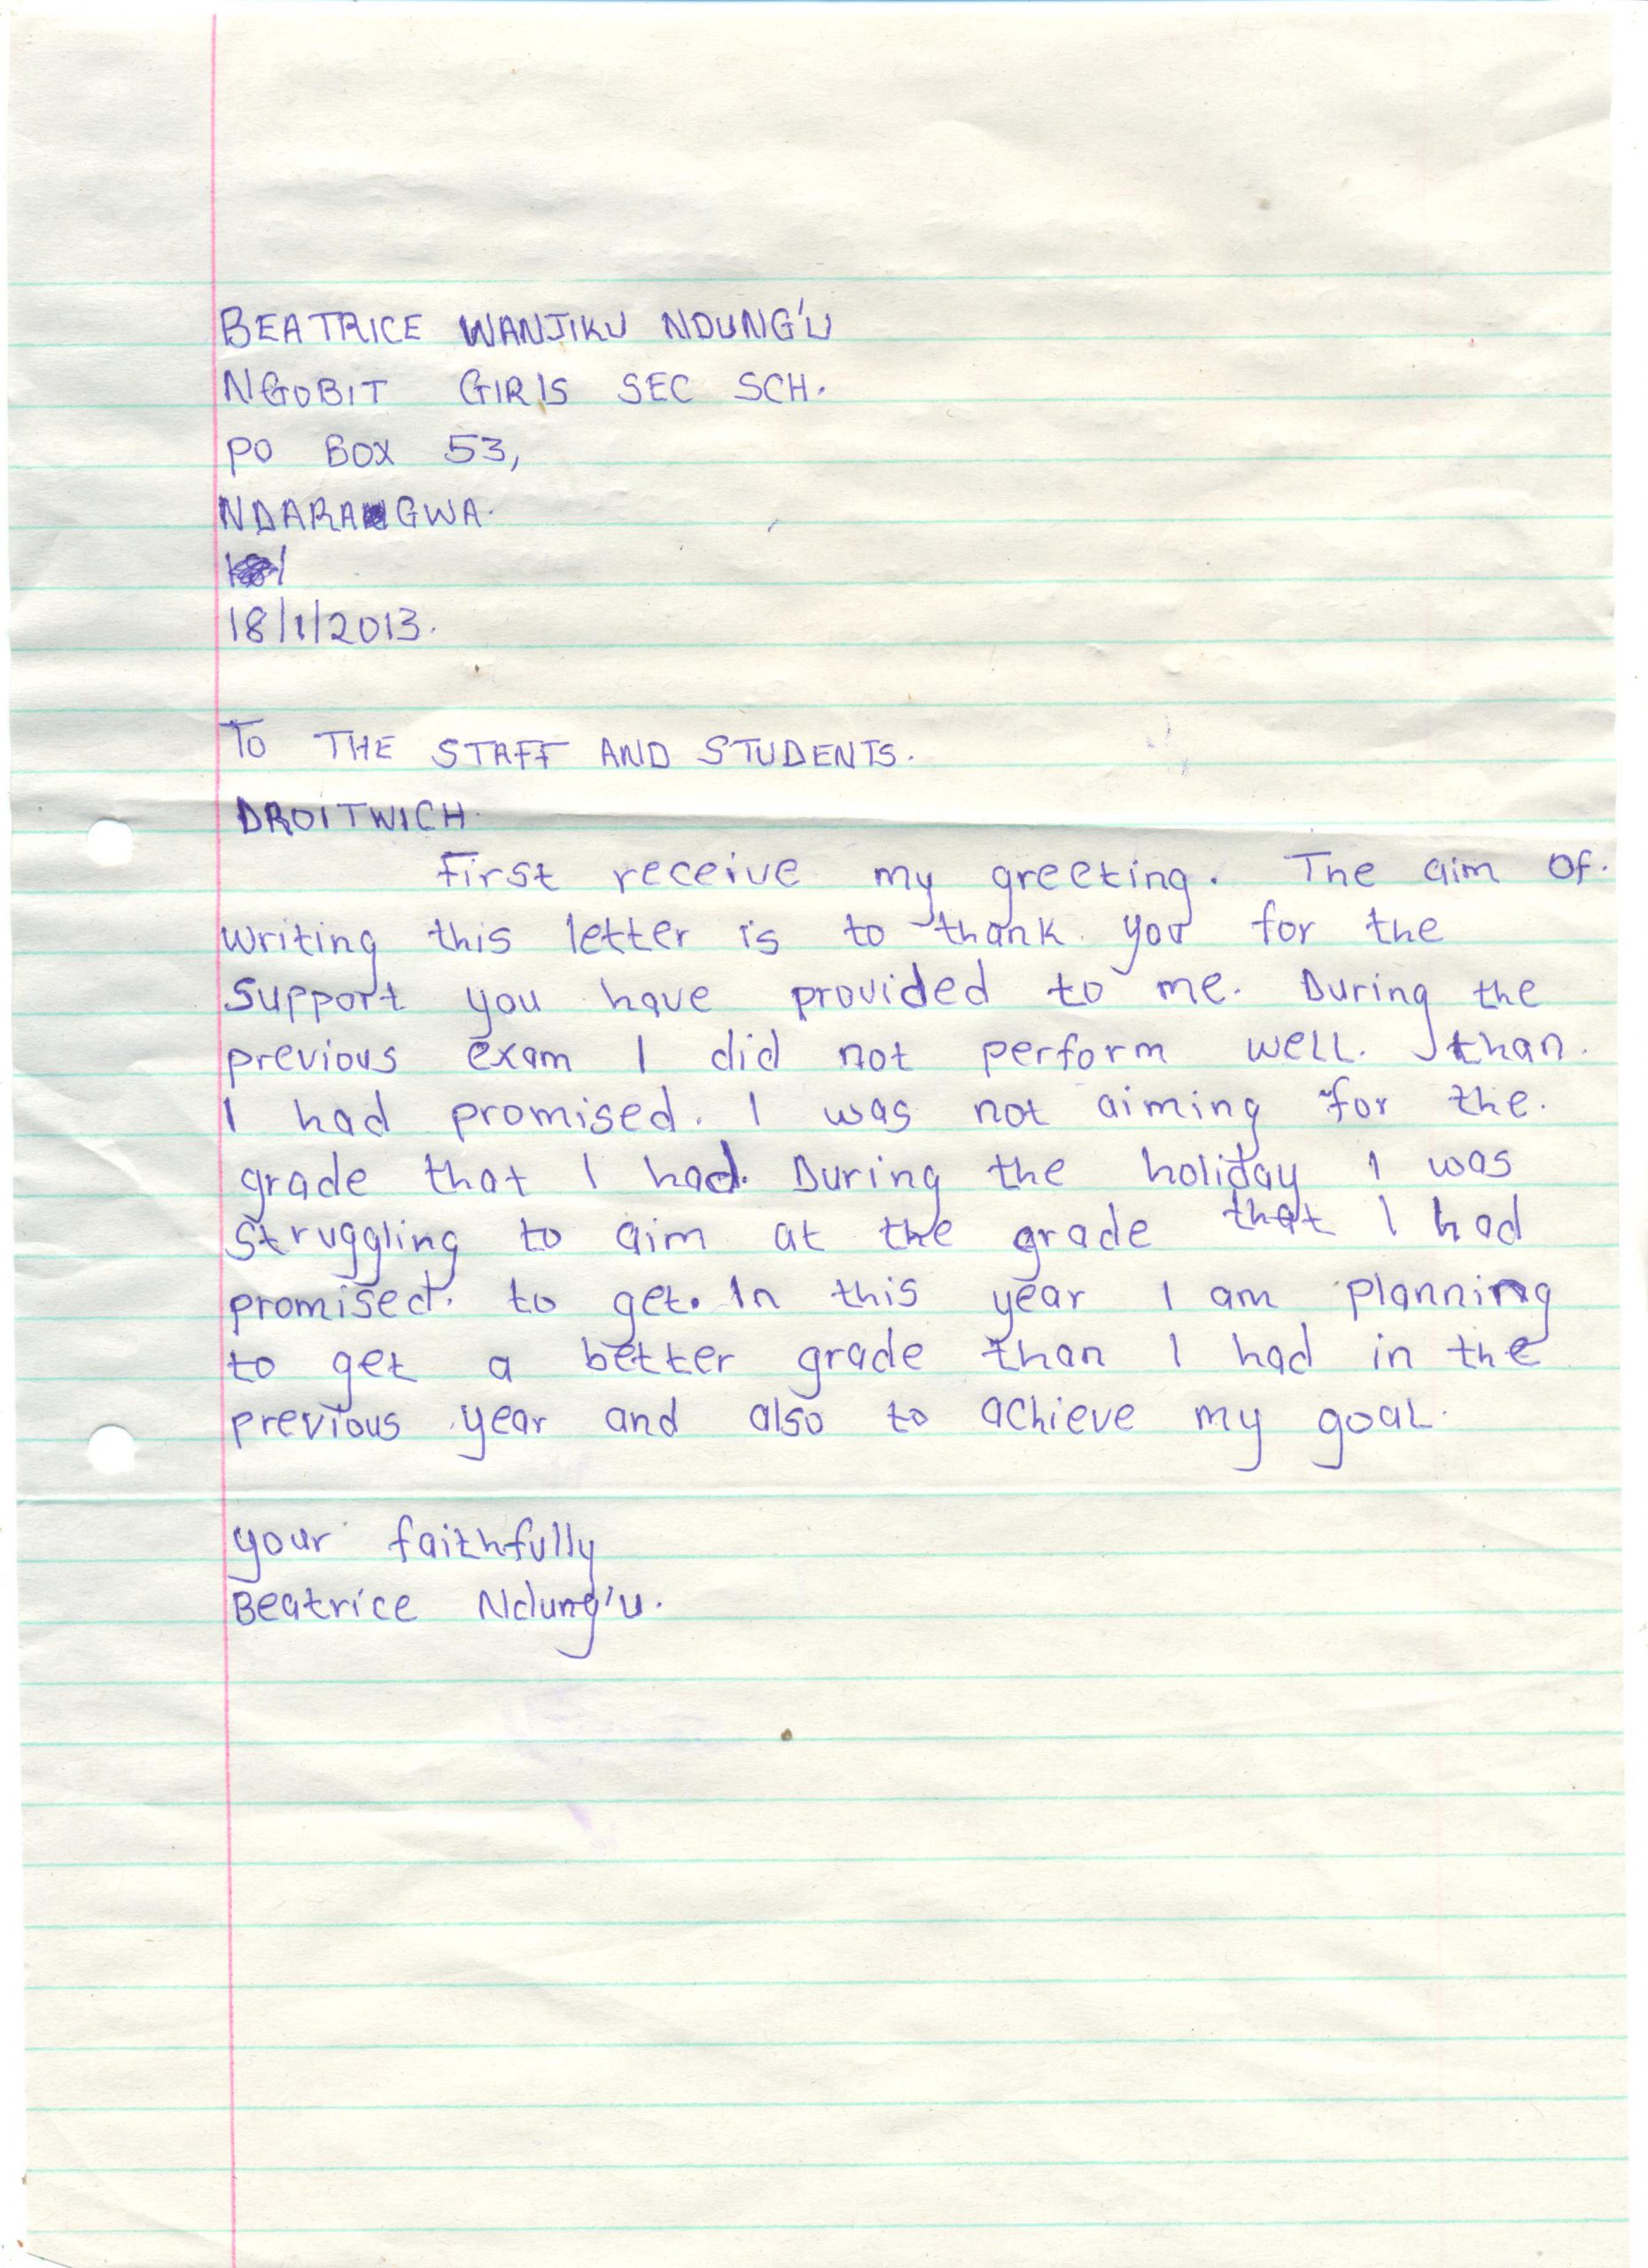 BEATRICE WANJIKU NDUNG'U
NGOBIT GIRLS SEC SCH.
PO BOX 53,
NDARAGWA.
18/1/2013.
TO THE STAFF AND STUDENTS.
DROITWICH.
First receive my greeting. The aim of.
writing this letter is to thank you for the
support you have provided to me. During the
previous exam I did not perform well. than.
I had promised. I was not aiming for the.
grade that I had. During the holiday I was
struggling to aim at the grade that I had
promised. to get. In this year I am planning
to get a better grade than I had in the
previous year and also to achieve my goal.
your faithfully
Beatrice Ndung'u.